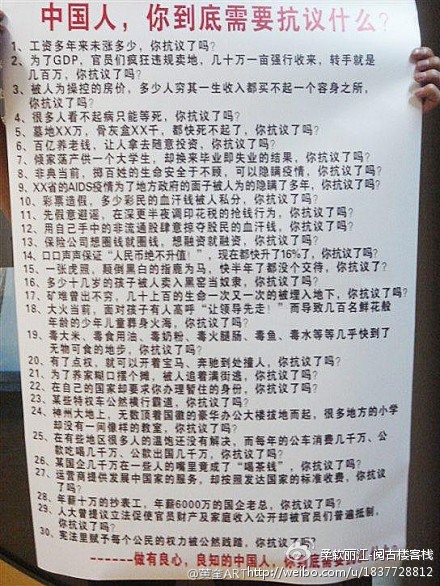 中国人，你到底需要抗议什么？
1、工资多年来未涨多少，你抗议了吗？
2、为了GDP，官员们疯狂违规卖地，几十万一亩强行收来，转手就是
几百万，你抗议了吗？
3、被人为操控的房价，多少人穷其一生收入都买不起一个容身之所，
你抗议了吗？
4、很多人看不起病只能等死，你抗议了吗？
5、墓地XX万，骨灰盒XX千，都快死不起了，你抗议了吗？
6、百亿养老钱，让人拿去随意投资，你抗议了吗？
7、倾家荡产供一个大学生，却换来毕业即失业的结果，你抗议了吗？
8、非典当前，掷百姓的生命安全于不顾，可以隐瞒疫情，你抗议了吗？
9、XX省的AIDS疫情为了地方政府的面子被人为的隐瞒了多年，你抗议了吗？
10、彩票造假，多少彩民的血汗钱被人私分，你抗议了吗？
11、先假意避谣，在深更半夜调印花税的抢钱行为，你抗议了吗？
12、用自己手中的非流通股肆意掠夺股民的血汗钱，你抗议了吗？
13、保险公司想圈钱就圈钱，想融资就融资，你抗议了吗？
14、口口声声保证“人民币绝不升值！”，现在都快升了16%了，你抗议了吗？
15、一张虎照，颠倒黑白的指鹿为马，快半年了都没个交待，你抗议了吗？
16、多少十几岁的孩子被人卖入黑窑当奴隶，你抗议了吗？
17、矿难曾出不穷，几十上百的生命一次又一次的被埋入地下，你抗议了吗？
18、大火当前，面对孩子有人高呼“让领导先走！”而导致几百名鲜花般
年龄的少年儿童葬身火海，你抗议了吗？
19、毒大米、毒食用油、毒奶粉、毒火腿肠、毒鱼、毒水等等几乎快到了
无物可食的地步，你抗议了吗？
20、有了点权，就可以开着宝马、奔驰到处撞人，你抗议了吗？
21、为了养家糊口摆个摊，被人追着满街逃，你抗议了吗？
22、在自己的国家却要求你办理暂住的身份，你抗议了吗？
23、某些特权车公然横行霸道，你抗议了吗？
24、神州大地上，无数顶着国徽的豪华办公大楼拔地而起，很多地方的小学
却没有一间像样的教室，你抗议了吗？
25、在有些地区很多人的温饱还没有解决，而每年的公车消费几千万、公
款吃喝几千万、公款出国几千万，你抗议了吗？
26、某国企几千万在一些人的嘴里竟成了“喝茶钱”，你抗议了吗？
27、运营商提供发展中国家的服务，却按照发达国家的标准收费，你抗议
了吗？
28、年薪十万的抄表工，年薪6000万的国企老总，你抗议了吗？
29、人大曾提议立法促使官员财产及家庭收入公开却被官员们普遍抵制，
你抗议了吗？
30、宪法里赋予每个公民的权力被公然践踏，你抗议了吗？
-------做有良心，良知的中国人，你到底需要抗
柔软丽江-阅古楼客栈
http://weibo.com/u/1837728812